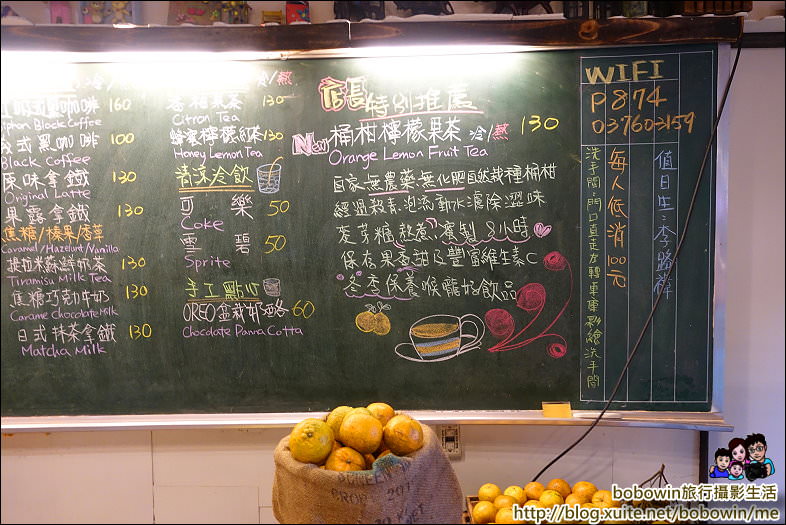 冷/熱
黑咖啡 160
Black Coffee
美式黑咖啡 100
Black Coffee
原味拿鐵 130
Original Latte
果露拿鐵 130
焦糖/榛果/香草
Caramel/Hazelnut/Vanilla
提拉米蘇鮮奶茶 130
Tiramisu Milk Tea
焦糖巧克力牛奶 130
Carame Chocolate Milk
日式抹茶拿鐵 130
Matcha Milk
/熱
香柚果茶 130
Citron Tea
蜂蜜檸檬紅茶 130
Honey Lemon Tea
清涼冷飲
可樂 50
Coke
雪碧 50
Sprite
手工點心
OREO盆栽奶酪 60
Chocolate Panna Cotta
店長特別推薦
New 桶柑檸檬果茶 冷/熱 130
Orange Lemon Fruit Tea
自家無農藥、無化肥自然栽種桶柑
經過殺青、泡流動水濾除澀味
麥芽糖熬煮、蜜製 8小時
保存果香甜及豐富維生素C
冬季保養喉嚨好飲品
WIFI
P874
037603159
值日生:李路祥
每人低消100元
洗手間:門口直走左轉草東彩繪洗手間
bobowin旅行攝影生活
http://blog.xuite.net/bobowin/me